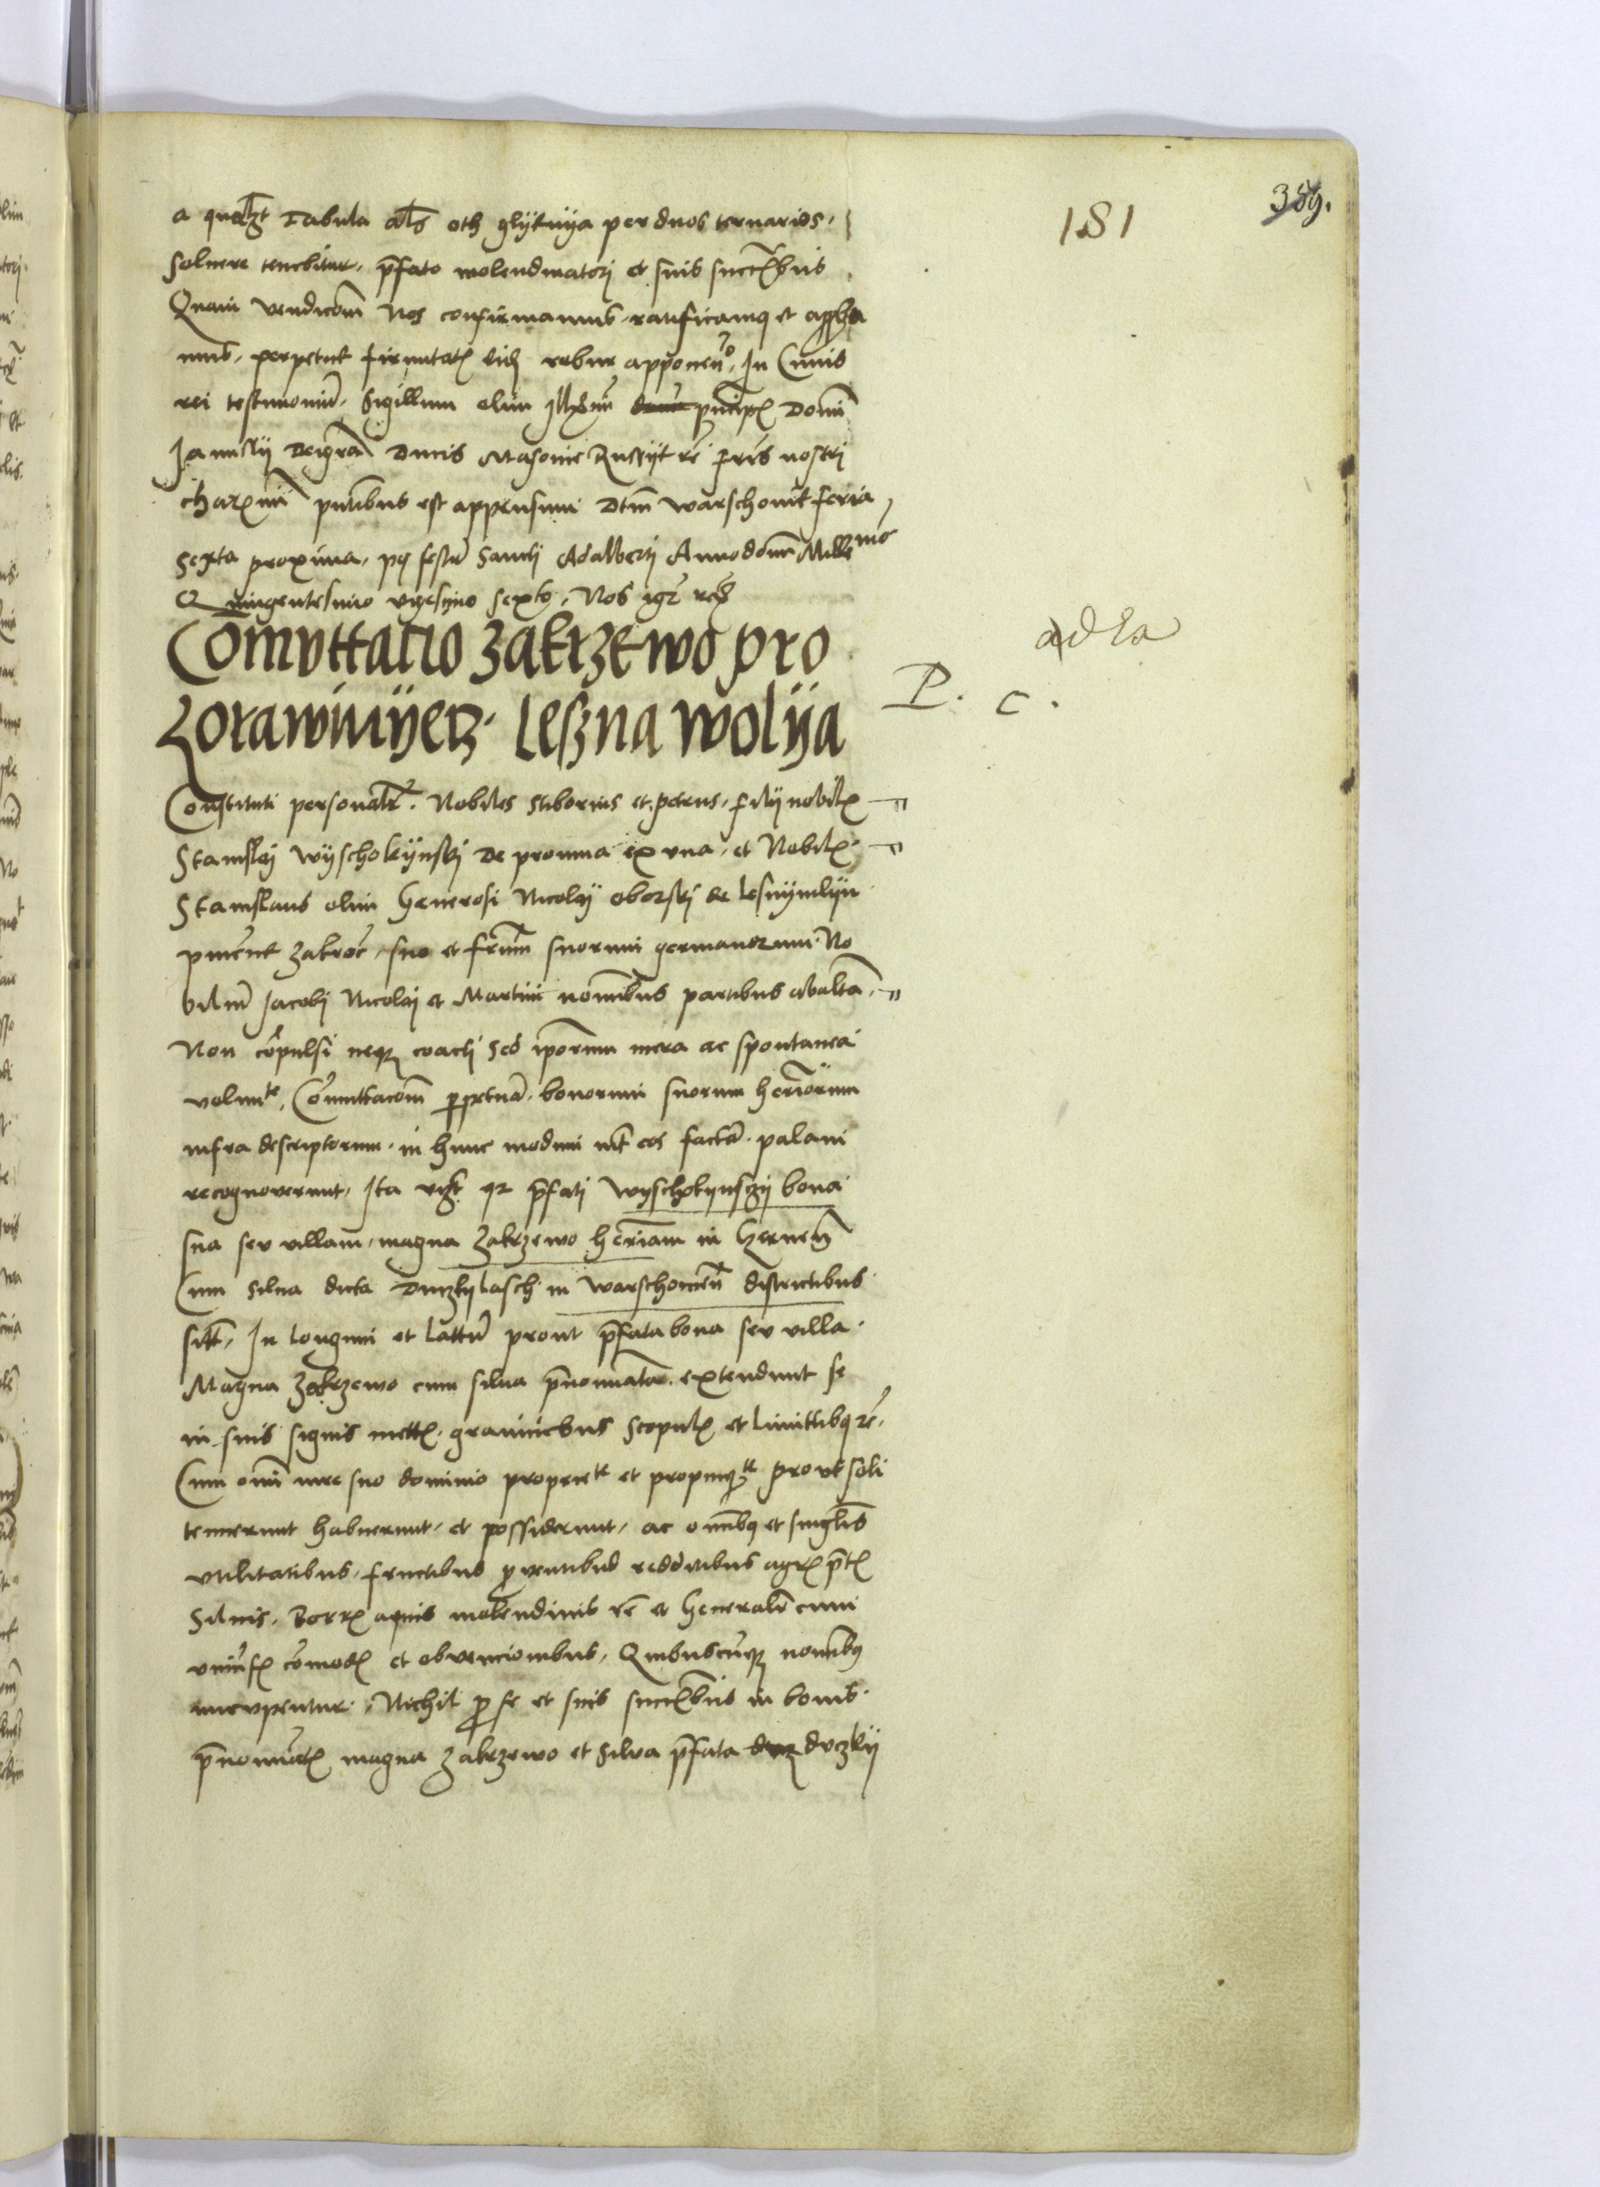 181
389.
a qualzt Tabula als oth glytwya per duos ternarios.
Soluere tenebitur. prefato molendinatorj et suis succribus
Quam vendicom Nos confirmamus. ratificamq et approba
mus. perpetue firmitatis robur apponen. In Cuius
rei testimoniu. Sigillum olim principis Domi
Janussy Deigra Ducis Masouie Russyt rc fris nostri
charmi pntibus est appensum Dtm Warschouie feria
Sexta proxima. post festu Sancti Adalberti Annodomi Millemo
Quingentesimo vigesimo sexto. Nos igr
Comuttacio zakrzewo pro
Zorawinyecz. Leszna wolya
ad la
P. c.
Constituti personalr. Nobiles Stiborius et petrus. filij nobilis
Stanislaj Wyschokynskj De promna ex vna. et Nobilis
Stanislaus olim Generosi Nicolaj oborskj de
suo et frum suorum germanorum No
biliu Jacobj Nicolaj et Martini nominibus partibus abalta.
Non compulsi neqz coacti Sed ipsorum mera ac spontanea
volunte. Comuttacom perpetua. bonorum suorum heriorum
infra descriptorum. in hunc modum int eos facta palam
recognoverunt. Ita videlzt qz prefati Wyschokynsczy bona
sua seu villam. magna Zakrzewo heriam in Czernen
Cum silua dicta Duczkylasch in Warschouien districtibus
sitt. In longum et lattu prout prefata bona seu villa
Magna Zakrzewo cum silua prenominata. extendunt se
in suis signis mettis. graniciebus Scopulis et limittibus rc.
Cum omi iure suo dominio propriete et propinqte prout soli
tenuerunt habuerunt. et possiderunt. ac omibus et singlis
vtilitatibus. fructibus prouentibus redditibus agris pratis
Siluis. Borris aquis molendinis rc et Generalr cum
vniuersis comodis et obvencionibus. Quibuscumqz nomibus
nuncupentur. Nichil pro se et suis succribus in bonis.
prenominatis magna Zakrzewo et silua prefata duczky